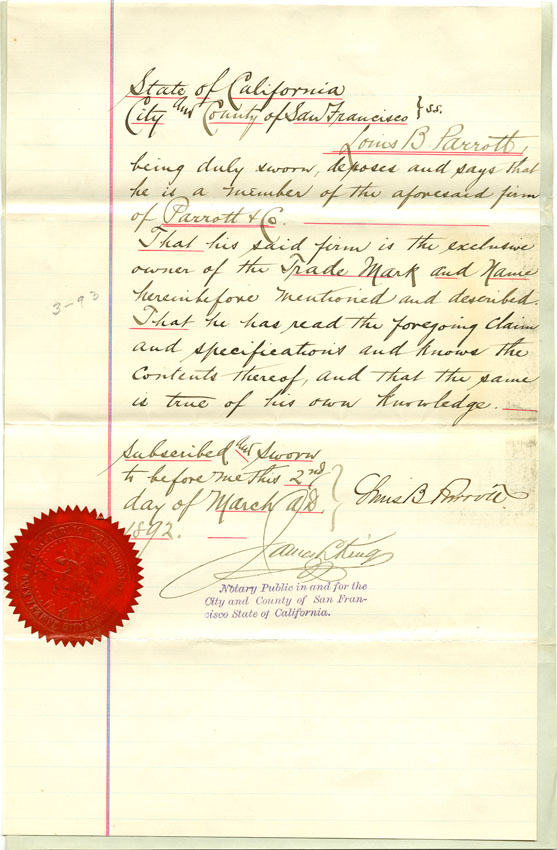 State of California
City and County of San Francisco } ss.
Louis B Parrott,
being duly sworn, deposes and says that
he is a member of the aforesaid firm
of Parrott & Co.
That his said firm is the exclusive
owner of the Trade Mark and Name
hereinbefore mentioned and described.
That he has read the foregoing claim
and specifications and knows the
contents thereof, and that the same
is true of his own knowledge.
3-93
Subscribed and sworn
to before me this 2nd
day of March A.D.
1892.
Louis B Parrott
James L King
Notary Public in and for the
City and County of San Fran-
cisco State of California.